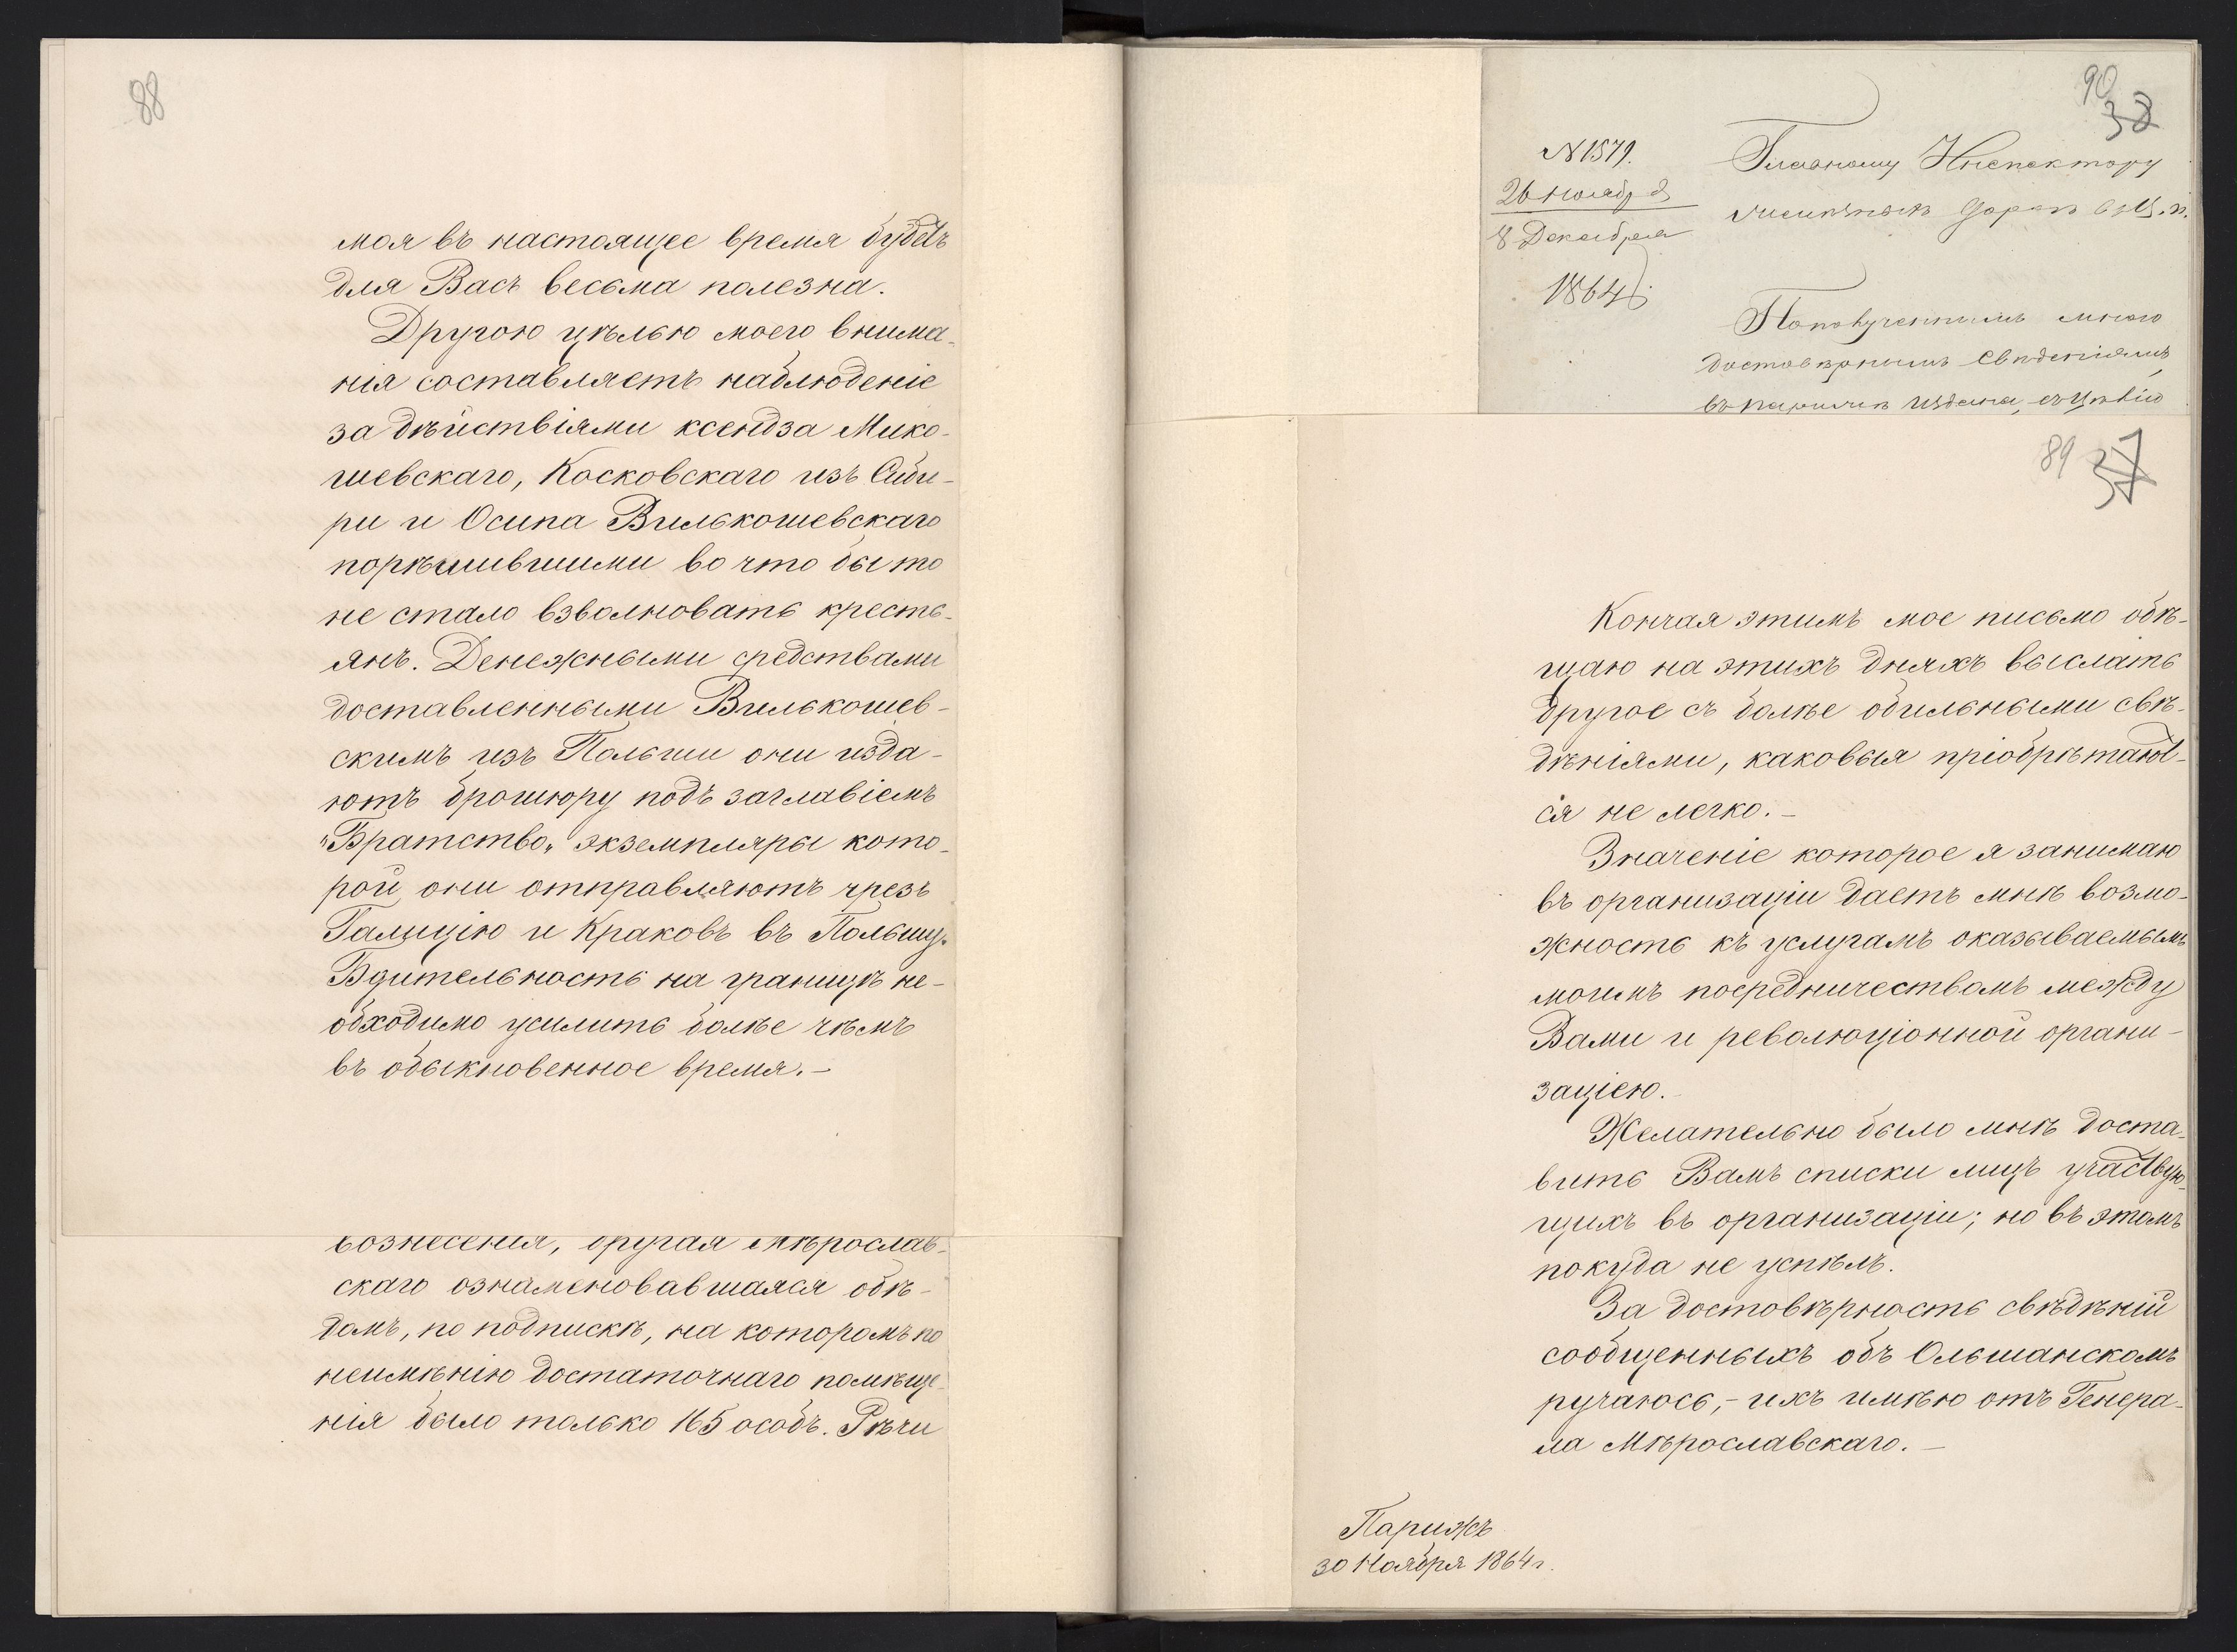 88
моя въ настоящее время будетъ
для Васъ весьма полезна.
Другою цѣлью моего внима-
нія составляетъ наблюденіе
за дѣйствіями ксендза Мико-
шевскаго, Косковскаго изъ Сиби-
ри и Осипа Вилькошевскаго
порѣшившими во что бы то
не стало взволновать кресть-
янъ. Денежными средствами
доставленными Вилькошев-
скимъ изъ Польши они изда-
ютъ брошюру подъ заглавіемъ
"Братство" экземпляры кото-
рой они отправляютъ чрезъ
Галицію и Краковъ въ Польшу.
Бдительность на границѣ не-
обходимо усилить болѣе чѣмъ
въ обыкновенное время.-
вознесенія, другая Мѣрослав-
скаго ознаменовавшаяся обѣ-
домъ, по подпискѣ, на которомъ по
неимѣнію достаточнаго помѣще-
нія было только 165 особъ. Рѣчи
90
38
N 1579.
26 Ноября
8 Декабря
1864
Главному Инспектору
Дорогъ въ Ц. П.
По полученнымъ мною
достовѣрнымъ Свѣденіямъ,
въ Парижѣ издана, съ цѣлію
89 37
Кончая этимъ мое письмо обѣ-
щаю на этихъ дняхъ выслать
другое съ болѣе обильными свѣ-
дѣніями, каковыя пріобрѣтают-
ся не легко.-
Значеніе которое я занимаю
въ организаціи даетъ мнѣ возмо-
жность къ услугамъ оказываемымъ
моимъ посредничествомъ между
Вами и революціонной органи-
заціею.-
Желательно было мнѣ доста-
вить Вамъ списки лицъ участвую-
щихъ въ организаціи; но въ этомъ
покуда не успѣлъ.
За достовѣрность свѣдѣній
сообщенныхъ объ Ольшанскомъ
ручаюсь,- ихъ имѣю отъ Генера-
ла Мѣрославскаго.-
Парижъ
30 Ноября 1864 г.